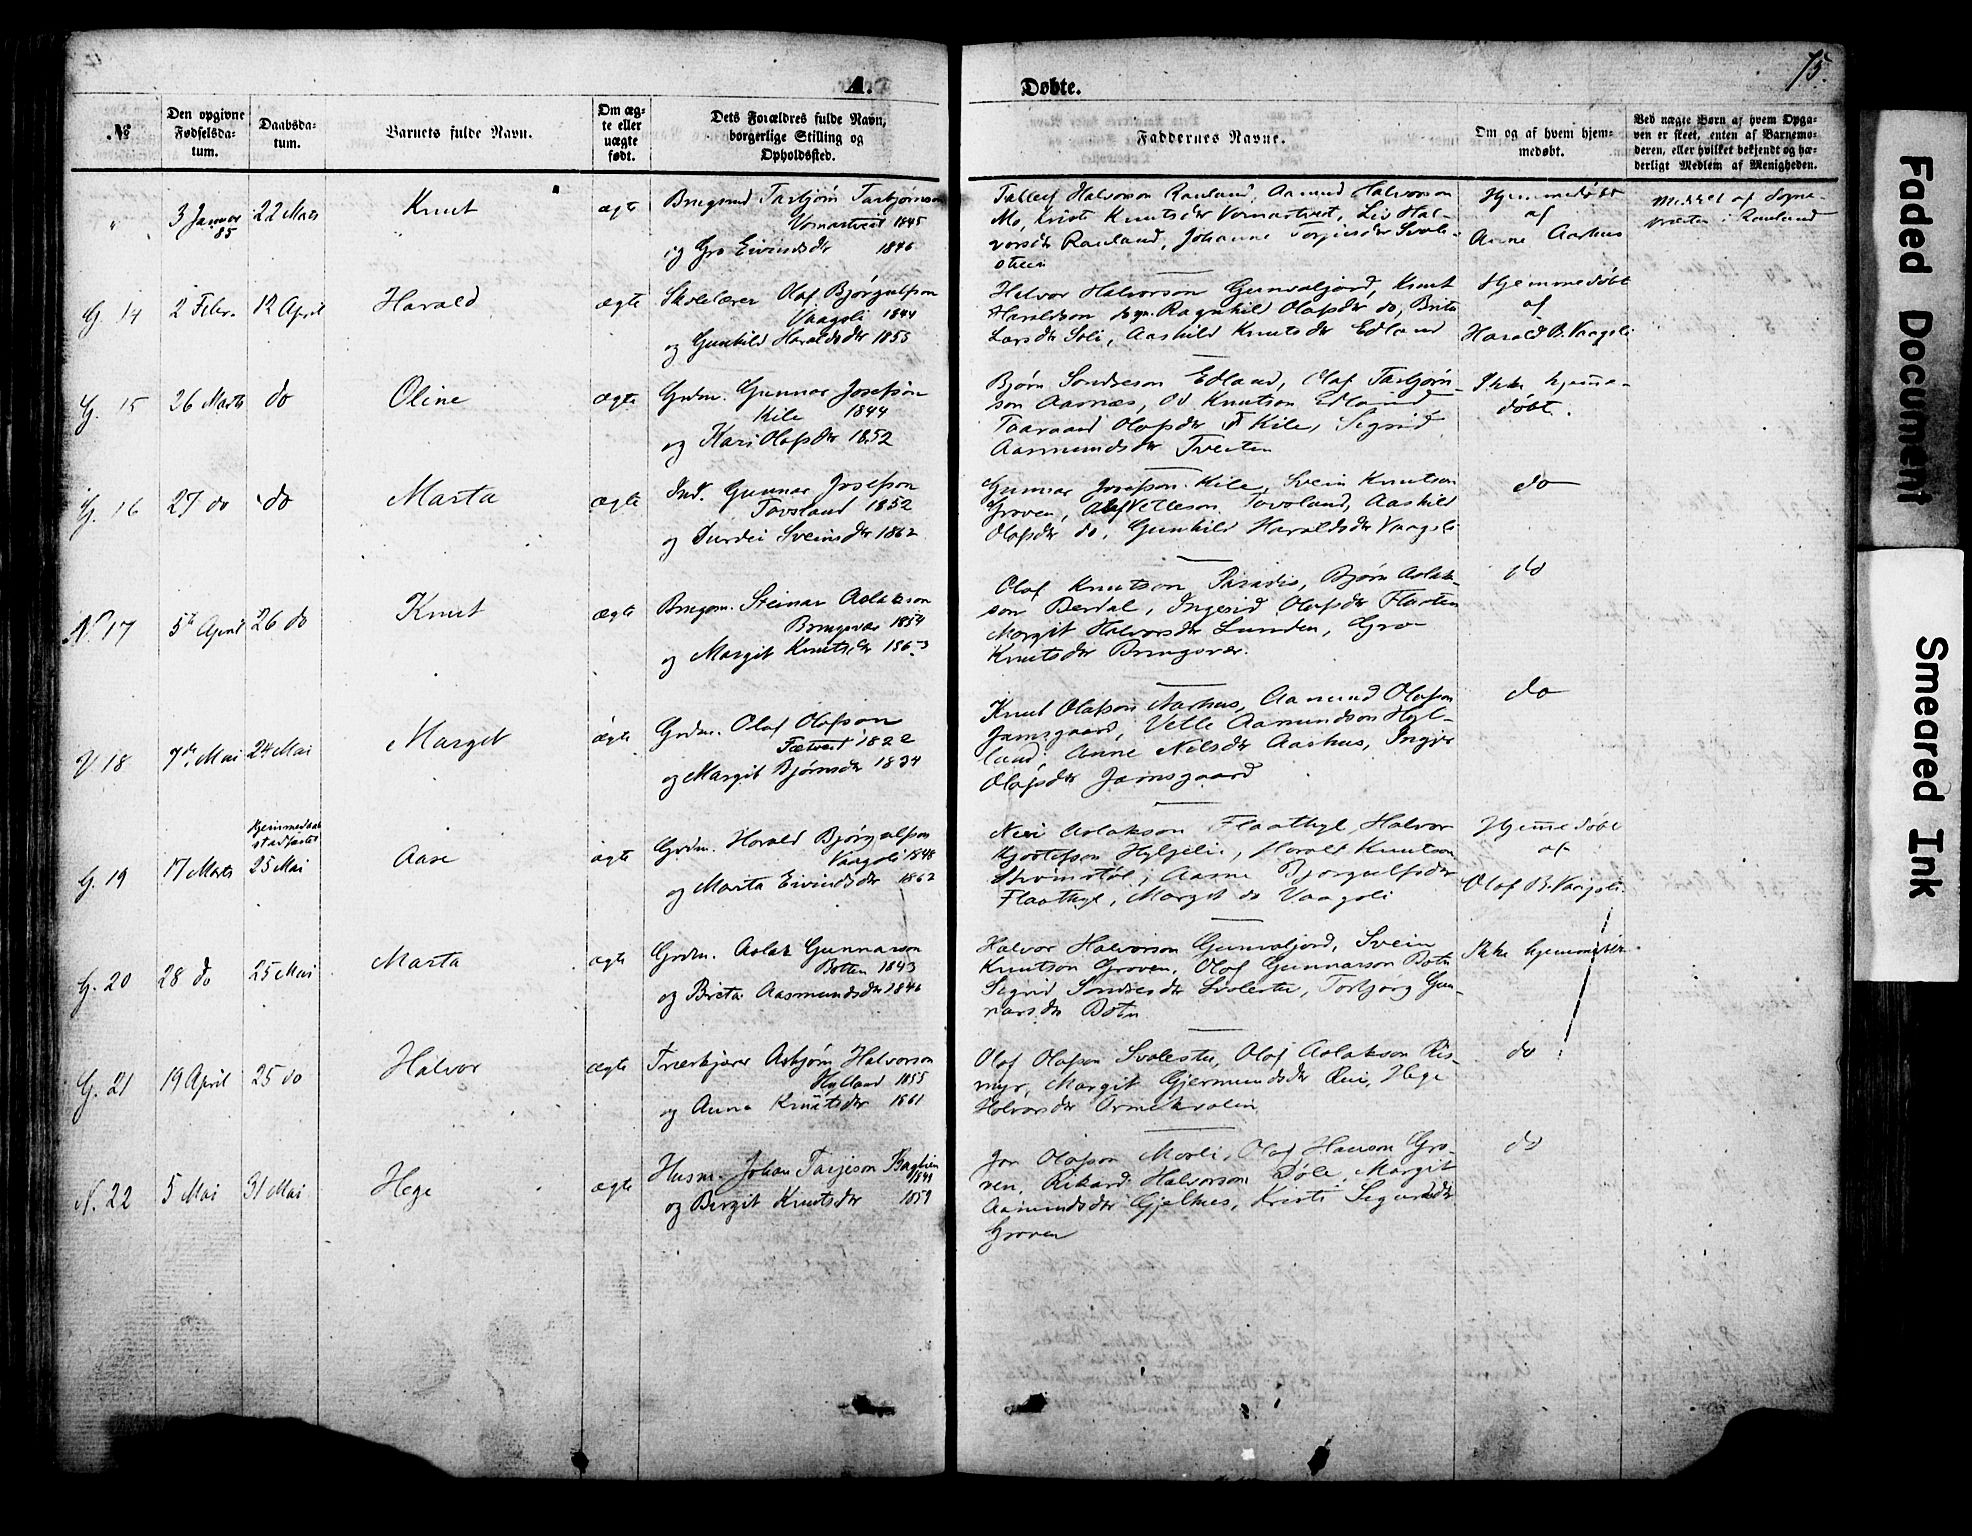 A. Døbte. 75.
№
Den opgivne Fødselsda-tum.
Daabsda-tum.
Barnets fulde Navn.
Om æg-te eller uægte født.
Dets Forældres fulde Navn, borgerlige Stilling og Opholdssted.
Faddernes Navne.
Om og af hvem hjem-medøbt.
Ved uægte Børn af hvem Opga-ven er skeet, enten af Barnemo-deren, eller hvilket bekjendt og hæ-derligt Medlem af Menigheden.
" 3 Januar 85 22 Marts Knut ægte Tarbjørn Tarbjørnson
1845
og Gro Eivindsdr 1846
Halvorson Rauland, Aamund Halvorson
Mo, Kristi Knutsdr Liv Hal-
vorsdr Rauland, Johanne
Hjemmedøbt
af
Anne Aarhus
Meddelt af Sogne-
præsten i Rauland
G. 14 2 Febr. 12 April Harald ægte Skolelærer Olaf Bjørgulfson
Vaagsli 1844
og Gunhild Haraldsdr 1855
Halvor Halvorson Knut
Haraldson Ragnhild Olafsdr do, Brita
Larsdr Aashild Knutsdr Edland
Hjemmedøbt
af
Harald B. Vaagsli
G. 15 26 Marts do Oline ægte Grdm. Gunnar Josefson
Kile 1844
og Kari Olafsdr 1852
Bjørn Sondreson Edland, Olaf Tarbjørn-
son Aarnæs, Od Knutson Edland
Taaraand Olafsdr Kile, Sigrid
Aasmundsdr Tveiten
Ikke hjemme-
døbt.
G. 16 27 do do Marta ægte Ind. Gunnar Josefson
Tovsland 1852
og Sveinsdr 1862
Gunnar Josefson Kile, Svein Knutson
Groven, Olaf Vetleson Tovsland, Aashild
Olafsdr do, Gunhild Haraldsdr Vaagsli
do
N. 17 5te April 26 do Knut ægte Brugsm. Steinar Aslakson
Bringsvær 1854
og Margit Knutsdr 1863
Olaf Knutson Paradis, Bjørn Aslak-
son Berdal, Ingerid Olafsdr Flaaten
Margit Halvorsdr Lunden, Gro
Knutsdr Bringsvær.
do
V. 18 7de Mai 24 Mai Marget ægte Grdm. Olaf Olafson
og Margit Bjørnsdr 1834
Knut Olafson Aarhus, Aamund Olafson
Jamsgaard, Vetle Aamundson Hyl-
land, Anne Nilsdr Aarhus,
Olafsdr Jamsgaard
do
G. 19 17 Marts Hjemmedaab
stadfæstet
25 Mai Aase ægte Grdm. Harald Bjørgulfson
Vaagsli 1848
og Marita Eivindsdr 1862
Aslakson Flaathyl, Halvor
Harald Knutson
Bjørgulfsdr
Flaathyl, Margit do Vaagsli
Hjemmedøbt
af
Olaf B. Vaagsli
G. 20 28 do 25 Mai Marta ægte Grdm. Aslak Gunnarson
Botten 1843
og Brita Aasmundsdr 1846
Halvor Halvorson Svein
Knutson Groven, Olaf Gunnarson Botn
Sigrid Sondresdr Torbjørg Gun-
narsdr Botn
Ikke hjemmedøbt
G. 21 19 April 25 do Halvor ægte Asbjørn Halvorson
Hylland 1855
og Anna Knutsdr 1861
Olaf Olafson Olaf Aslakson Ris-
myr, Margit Gjermundsdr Hege
Halvorsdr
do
N. 22 5 Mai 31 Mai Hege ægte Husm. Johan Tarjeson
og Birgit Knutsdr 1859
Jon Olafson Olaf Hanson Gro-
ven, Rikard Halvorson Døle, Margit
Aamundsdr Gjelhus, Kristi Sigurdsdr
Groven
do
Faded Document
Smeared Ink